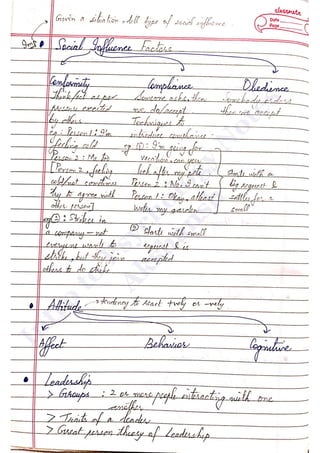 Given a situation, tell type of social influence.
classmate
Date
Page
Imp
Social Influence Factors
Conformity Compliance Obedience
think/act as per Someone asks, then Somebody orders
pressure exerted we do/accept then we accept
by others Techniques to
eg: Person 1: I'm introduce compliance -
feeling cold eg ①: I'm going for
Person 2: Me too vacation, can you
[Person 2, feeling look after my pets starts with a
cold/not sometimes Person 2: No I can't big request &
try to agree with Person 1: Okay, atleast settles for a
other person] water my garden small
eg ②: Strikes in
a company - not ② Starts with small
everyone wants to request & is
strike, but they join accepted
others to do strike
Attitude → tendency to react +vely or -vely
Affect Behavior Cognitive
Leadership
> Groups : 2 or more people interacting with one
another
> Traits of a leader
> Great person theory of Leadership